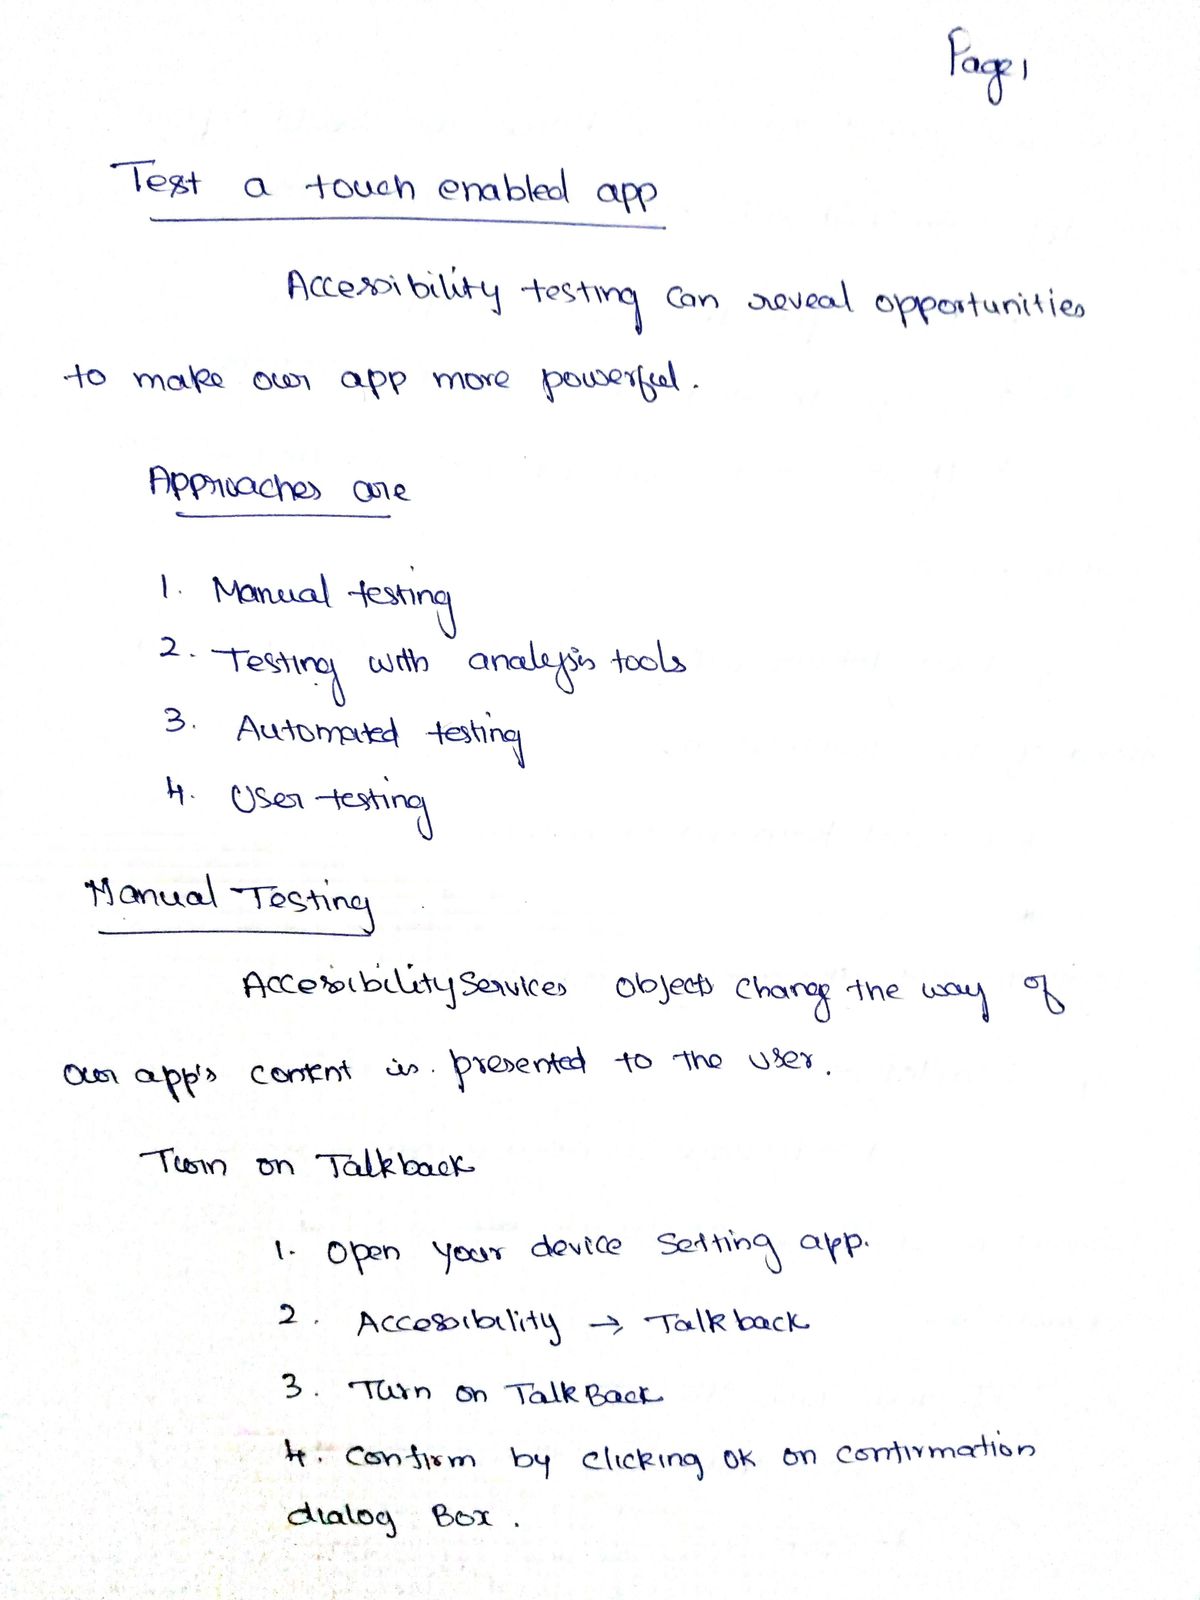 Page 1
Test a touch enabled app
Accessibility testing can reveal opportunities
to make our app more powerful.
Approaches are
1. Manual testing
2. Testing with analysis tools
3. Automated testing
4. User testing
Manual Testing
AccessibilityServices objects change the way of
our app's content is presented to the user.
Turn on Talkback
1. Open your device setting app.
2. Accessibility → Talkback
3. Turn on TalkBack
4. Confirm by clicking ok on confirmation
dialog Box.